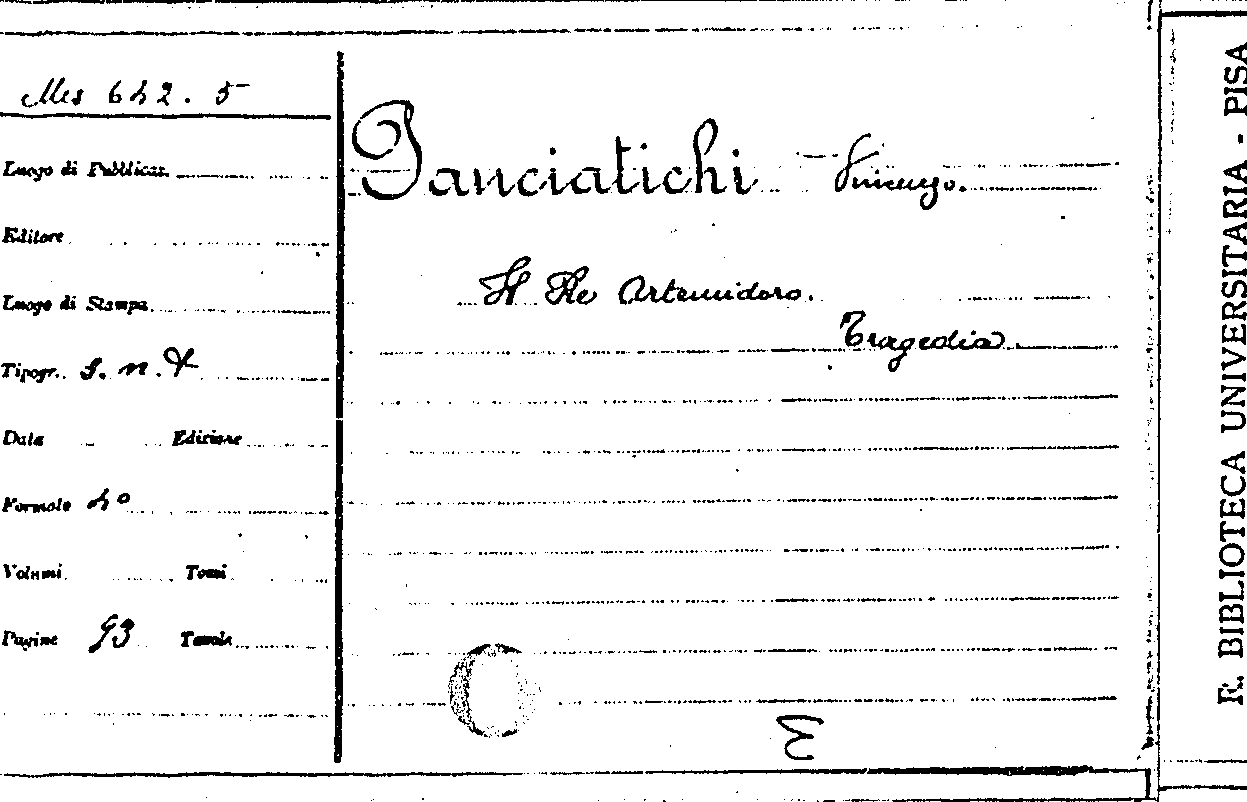 Mss 642. 5
Luogo di Pubblicaz.
Editore
Luogo di Stampa
Tipogr. S. n. t
Data Edizione
Formato 4°
Volumi Tomi
Pagine 93 Tavole
Panciatichi Vincenzo.
Il Re Artemidoro.
Tragedia.
R. BIBLIOTECA UNIVERSITARIA - PISA